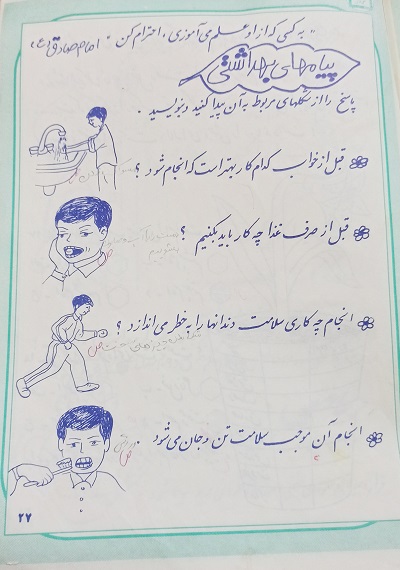 " به کسی که از او علم می آموزی ، احترام کن " امام صادق (ع)
پیام های بهداشتی
پاسخ را از شکلهای مربوط به آن پیدا کنید و بنویسید .
قبل از خواب کدام کار بهتر است که انجام شود ؟
قبل از صرف غذا چه کار باید بکنیم ؟
انجام چه کاری سلامت دندانها را به خطر می اندازد ؟
انجام آن موجب سلامت تن و جان می شود .
۲۷